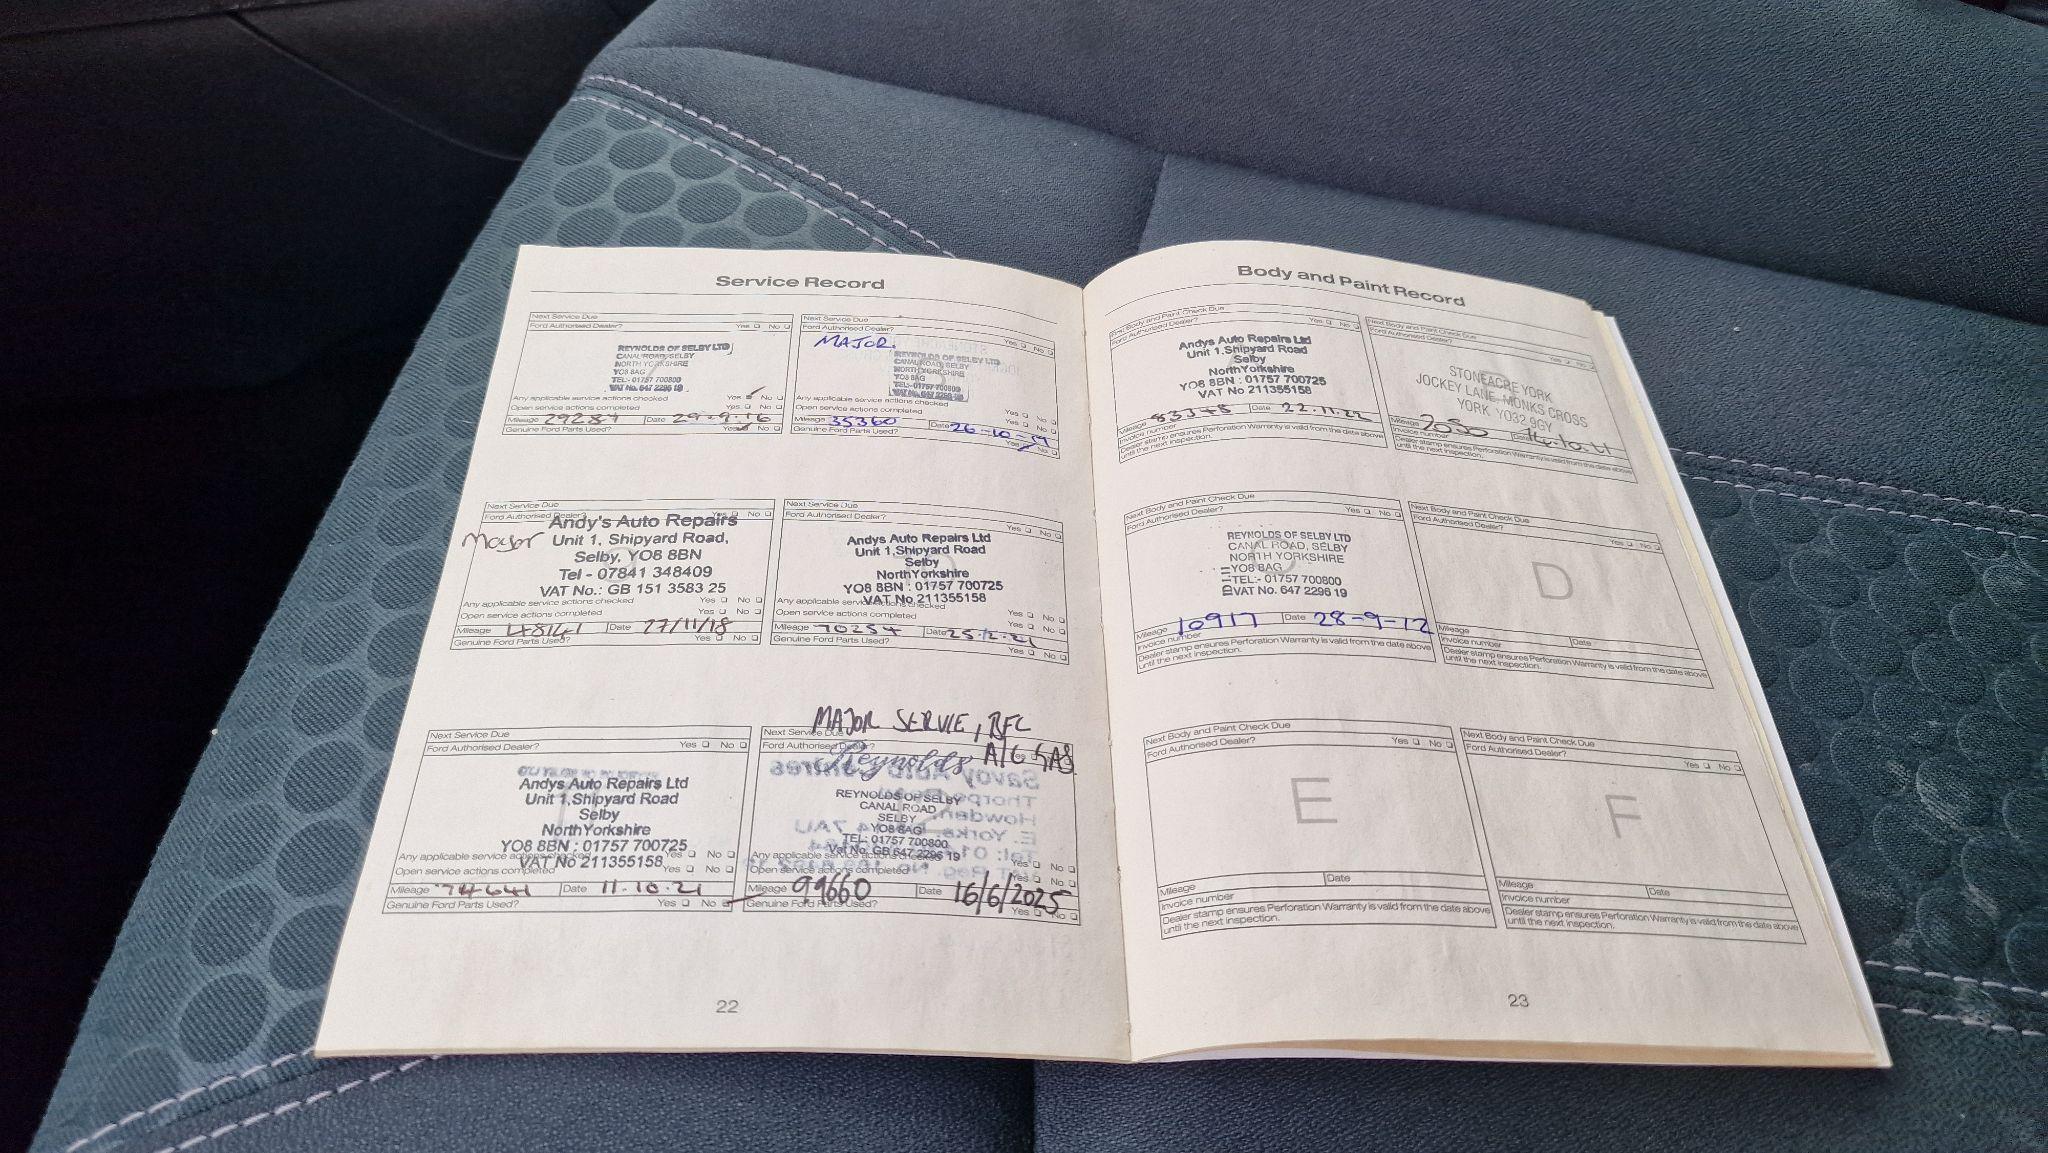 Service Record
Next Service Due
Ford Authorised Dealer? Yes No
REYNOLDS OF SELBY LTD
CANAL ROAD, SELBY
NORTH YORKSHIRE
YO8 8AG
TEL:- 01757 700800
VAT No. 647 2296 19
Any applicable service actions checked Yes No
Open service actions completed Yes No
Mileage 29284 Date 29-9-16
Genuine Ford Parts Used? Yes No
Next Service Due
Ford Authorised Dealer? Yes No
MAJOR.
REYNOLDS OF SELBY LTD
CANAL ROAD, SELBY
NORTH YORKSHIRE
YO8 8AG
TEL:- 01757 700800
VAT No. 647 2296 19
Any applicable service actions checked
Open service actions completed Yes No
Mileage 35360 Date 26-10-17
Genuine Ford Parts Used? Yes No
Next Service Due
Ford Authorised Dealer? Yes No
Major
Andy's Auto Repairs
Unit 1, Shipyard Road,
Selby, YO8 8BN
Tel - 07841 348409
VAT No.: GB 151 3583 25
Any applicable service actions checked Yes No
Open service actions completed Yes No
Mileage 48141 Date 27/11/18
Genuine Ford Parts Used? Yes No
Next Service Due
Ford Authorised Dealer? Yes No
Andys Auto Repairs Ltd
Unit 1,Shipyard Road
Selby
NorthYorkshire
YO8 8BN : 01757 700725
VAT No 211355158
Any applicable service actions checked Yes No
Open service actions completed Yes No
Mileage 70254 Date 25.2.21
Genuine Ford Parts Used? Yes No
Next Service Due
Ford Authorised Dealer? Yes No
Andys Auto Repairs Ltd
Unit 1,Shipyard Road
Selby
NorthYorkshire
YO8 8BN : 01757 700725
VAT No 211355158
Any applicable service actions checked Yes No
Open service actions completed Yes No
Mileage 74641 Date 11.10.21
Genuine Ford Parts Used? Yes No
MAJOR SERVIE,
Next Service Due
Ford Authorised Dealer?
A/C GAS
Reynolds
REYNOLDS OF SELBY
CANAL ROAD
SELBY
YO8 8AG
TEL: 01757 700800
Vat No. GB 647 2296 19
Any applicable service actions checked Yes No
Open service actions completed Yes No
Mileage 99660 Date 16/6/2025
Genuine Ford Parts Used? Yes No
22
Body and Paint Record
First Body and Paint Check Due
Ford Authorised Dealer? Yes No
Andys Auto Repairs Ltd
Unit 1,Shipyard Road
Selby
NorthYorkshire
YO8 8BN : 01757 700725
VAT No 211355158
Mileage Date 22.11.22
Invoice number
Dealer stamp ensures Perforation Warranty is valid from the date above
until the next inspection.
Next Body and Paint Check Due
Ford Authorised Dealer? Yes No
STONEACRE YORK
JOCKEY LANE, MONKS CROSS
YORK YO32 9GY
Mileage Date
Invoice number
Dealer stamp ensures Perforation Warranty is valid from the date above
until the next inspection.
Next Body and Paint Check Due
Ford Authorised Dealer? Yes No
REYNOLDS OF SELBY LTD
CANAL ROAD, SELBY
NORTH YORKSHIRE
YO8 8AG
TEL:- 01757 700800
VAT No. 647 2296 19
Mileage 10917 Date 28-9-12
Invoice number
Dealer stamp ensures Perforation Warranty is valid from the date above
until the next inspection.
Next Body and Paint Check Due
Ford Authorised Dealer? Yes No
D
Mileage Date
Invoice number
Dealer stamp ensures Perforation Warranty is valid from the date above
until the next inspection.
Next Body and Paint Check Due
Ford Authorised Dealer? Yes No
E
Mileage Date
Invoice number
Dealer stamp ensures Perforation Warranty is valid from the date above
until the next inspection.
Next Body and Paint Check Due
Ford Authorised Dealer? Yes No
F
Mileage Date
Invoice number
Dealer stamp ensures Perforation Warranty is valid from the date above
until the next inspection.
23